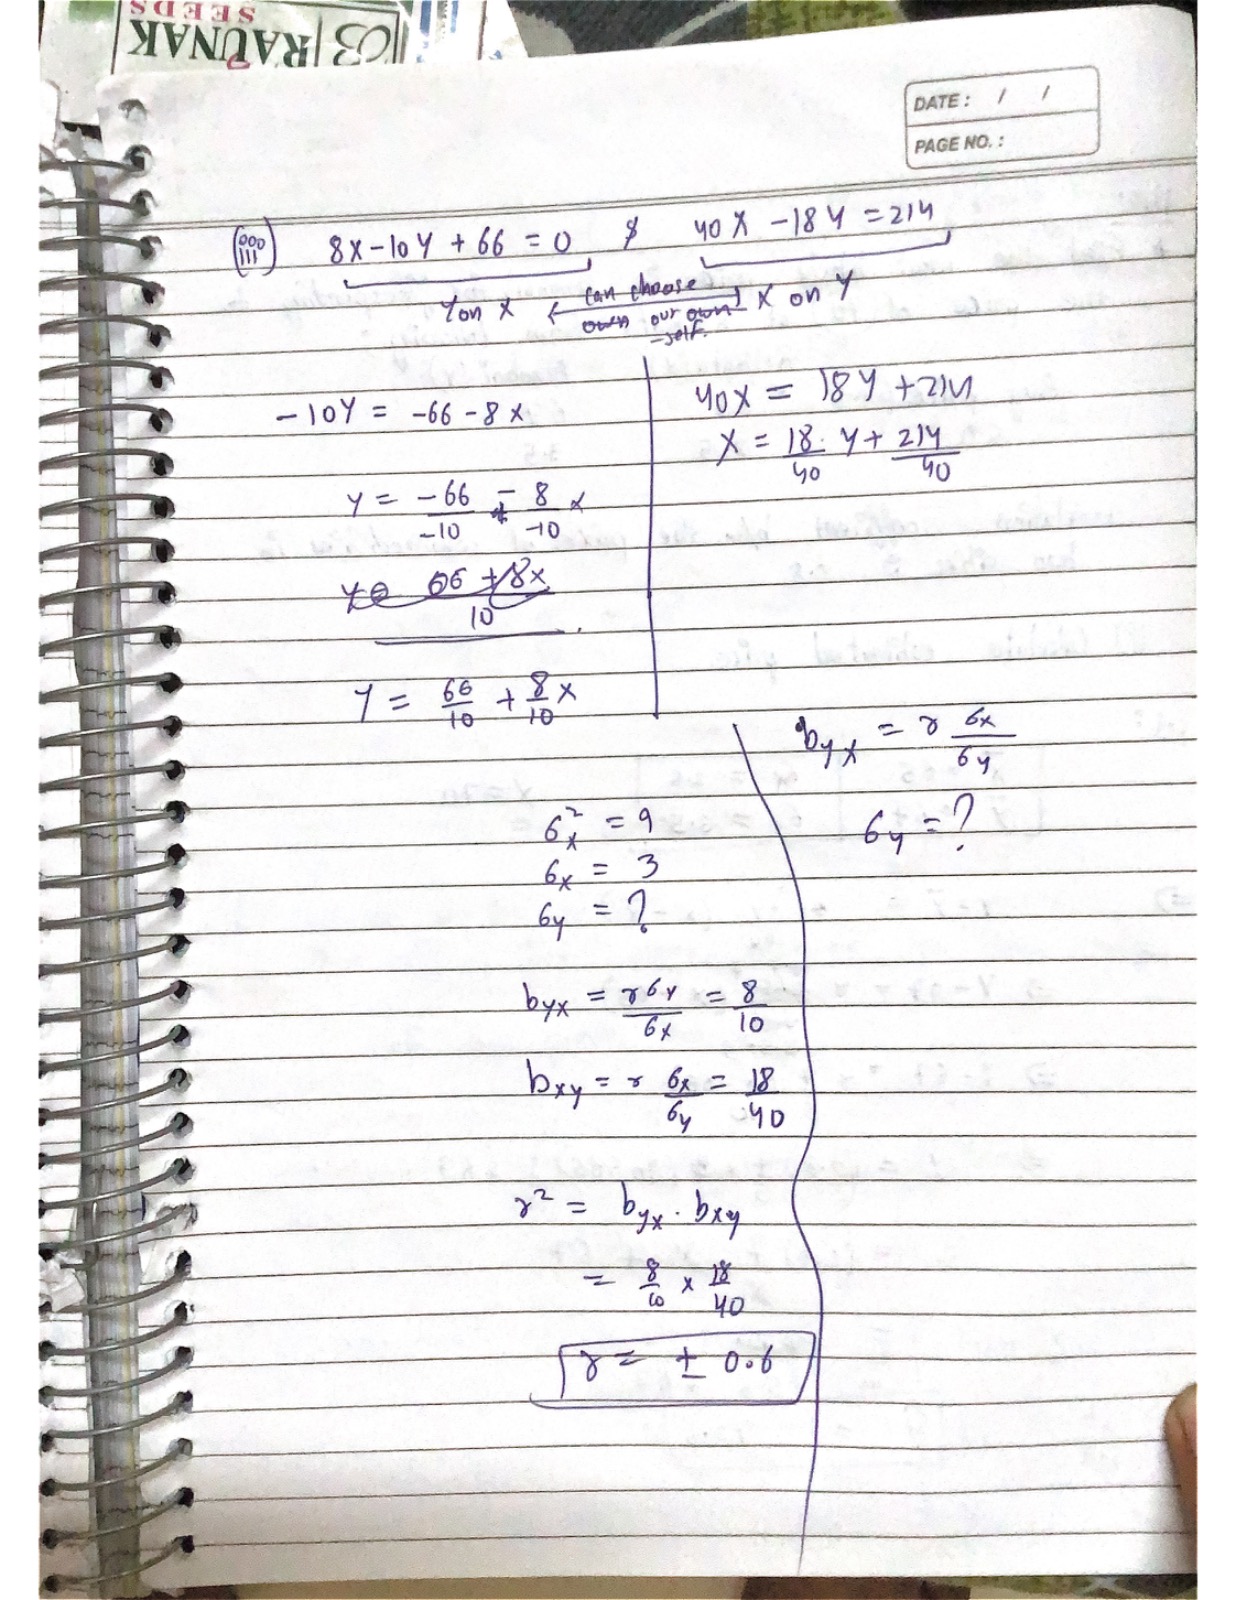 SEEDS
RAUNAK
DATE : / /
PAGE NO. :
(iii) 8X-10Y + 66 = 0 & 40X - 18Y = 214
Y on X ← can choose → X on Y
own our own
-self.
-10Y = -66 - 8x
Y = -66/-10 - 8/-10 x
66 + 8x / 10
Y = 66/10 + 8/10 x
40X = 18Y + 214
X = 18/40 . Y + 214/40
byx = r 6x/6y
6y = ?
6x² = 9
6x = 3
6y = ?
byx = r6y/6x = 8/10
bxy = r 6x/6y = 18/40
r² = byx . bxy
= 8/10 x 18/40
r = ± 0.6